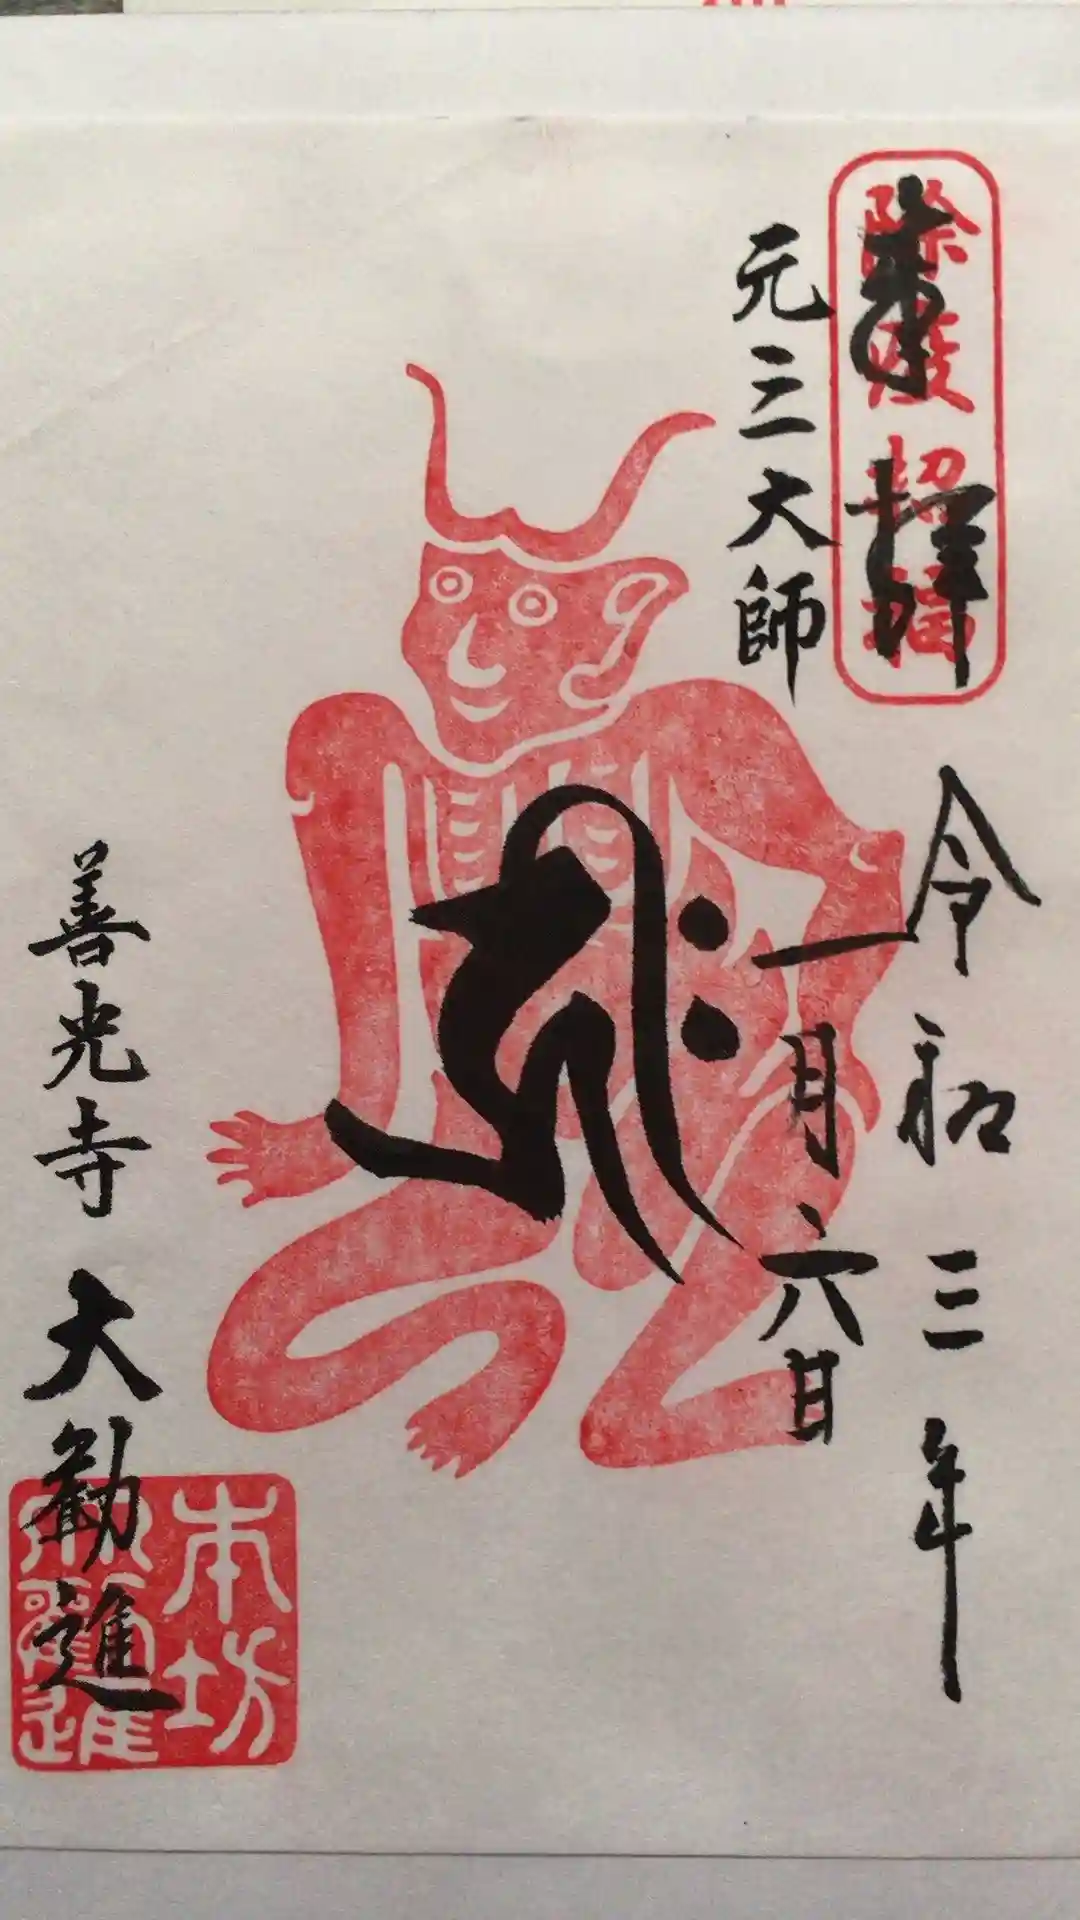 奉拝
除疫招福
元三大師
令和三年
一月六日
善光寺 大勧進
本坊
大勧進